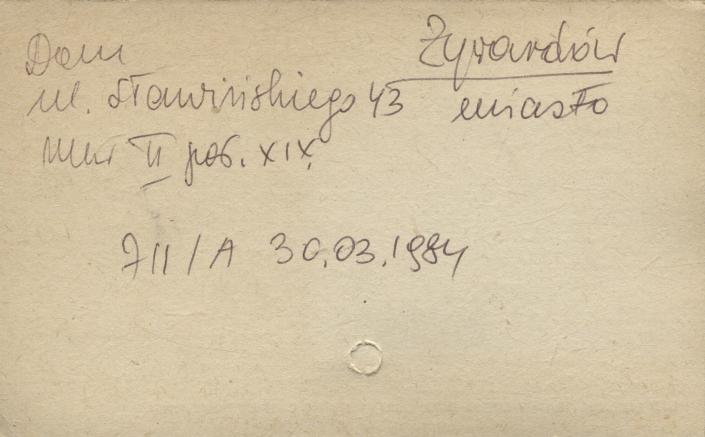 Dom
Żyrardów
ul. Sławińskiego 43
miasto
mur II poł. XIX.
711/A 30.03.1984